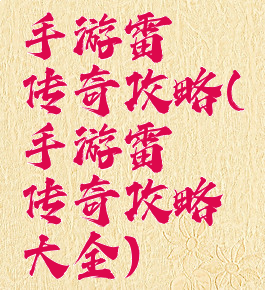 手游雷
传奇攻略(
手游雷
传奇攻略
大全)